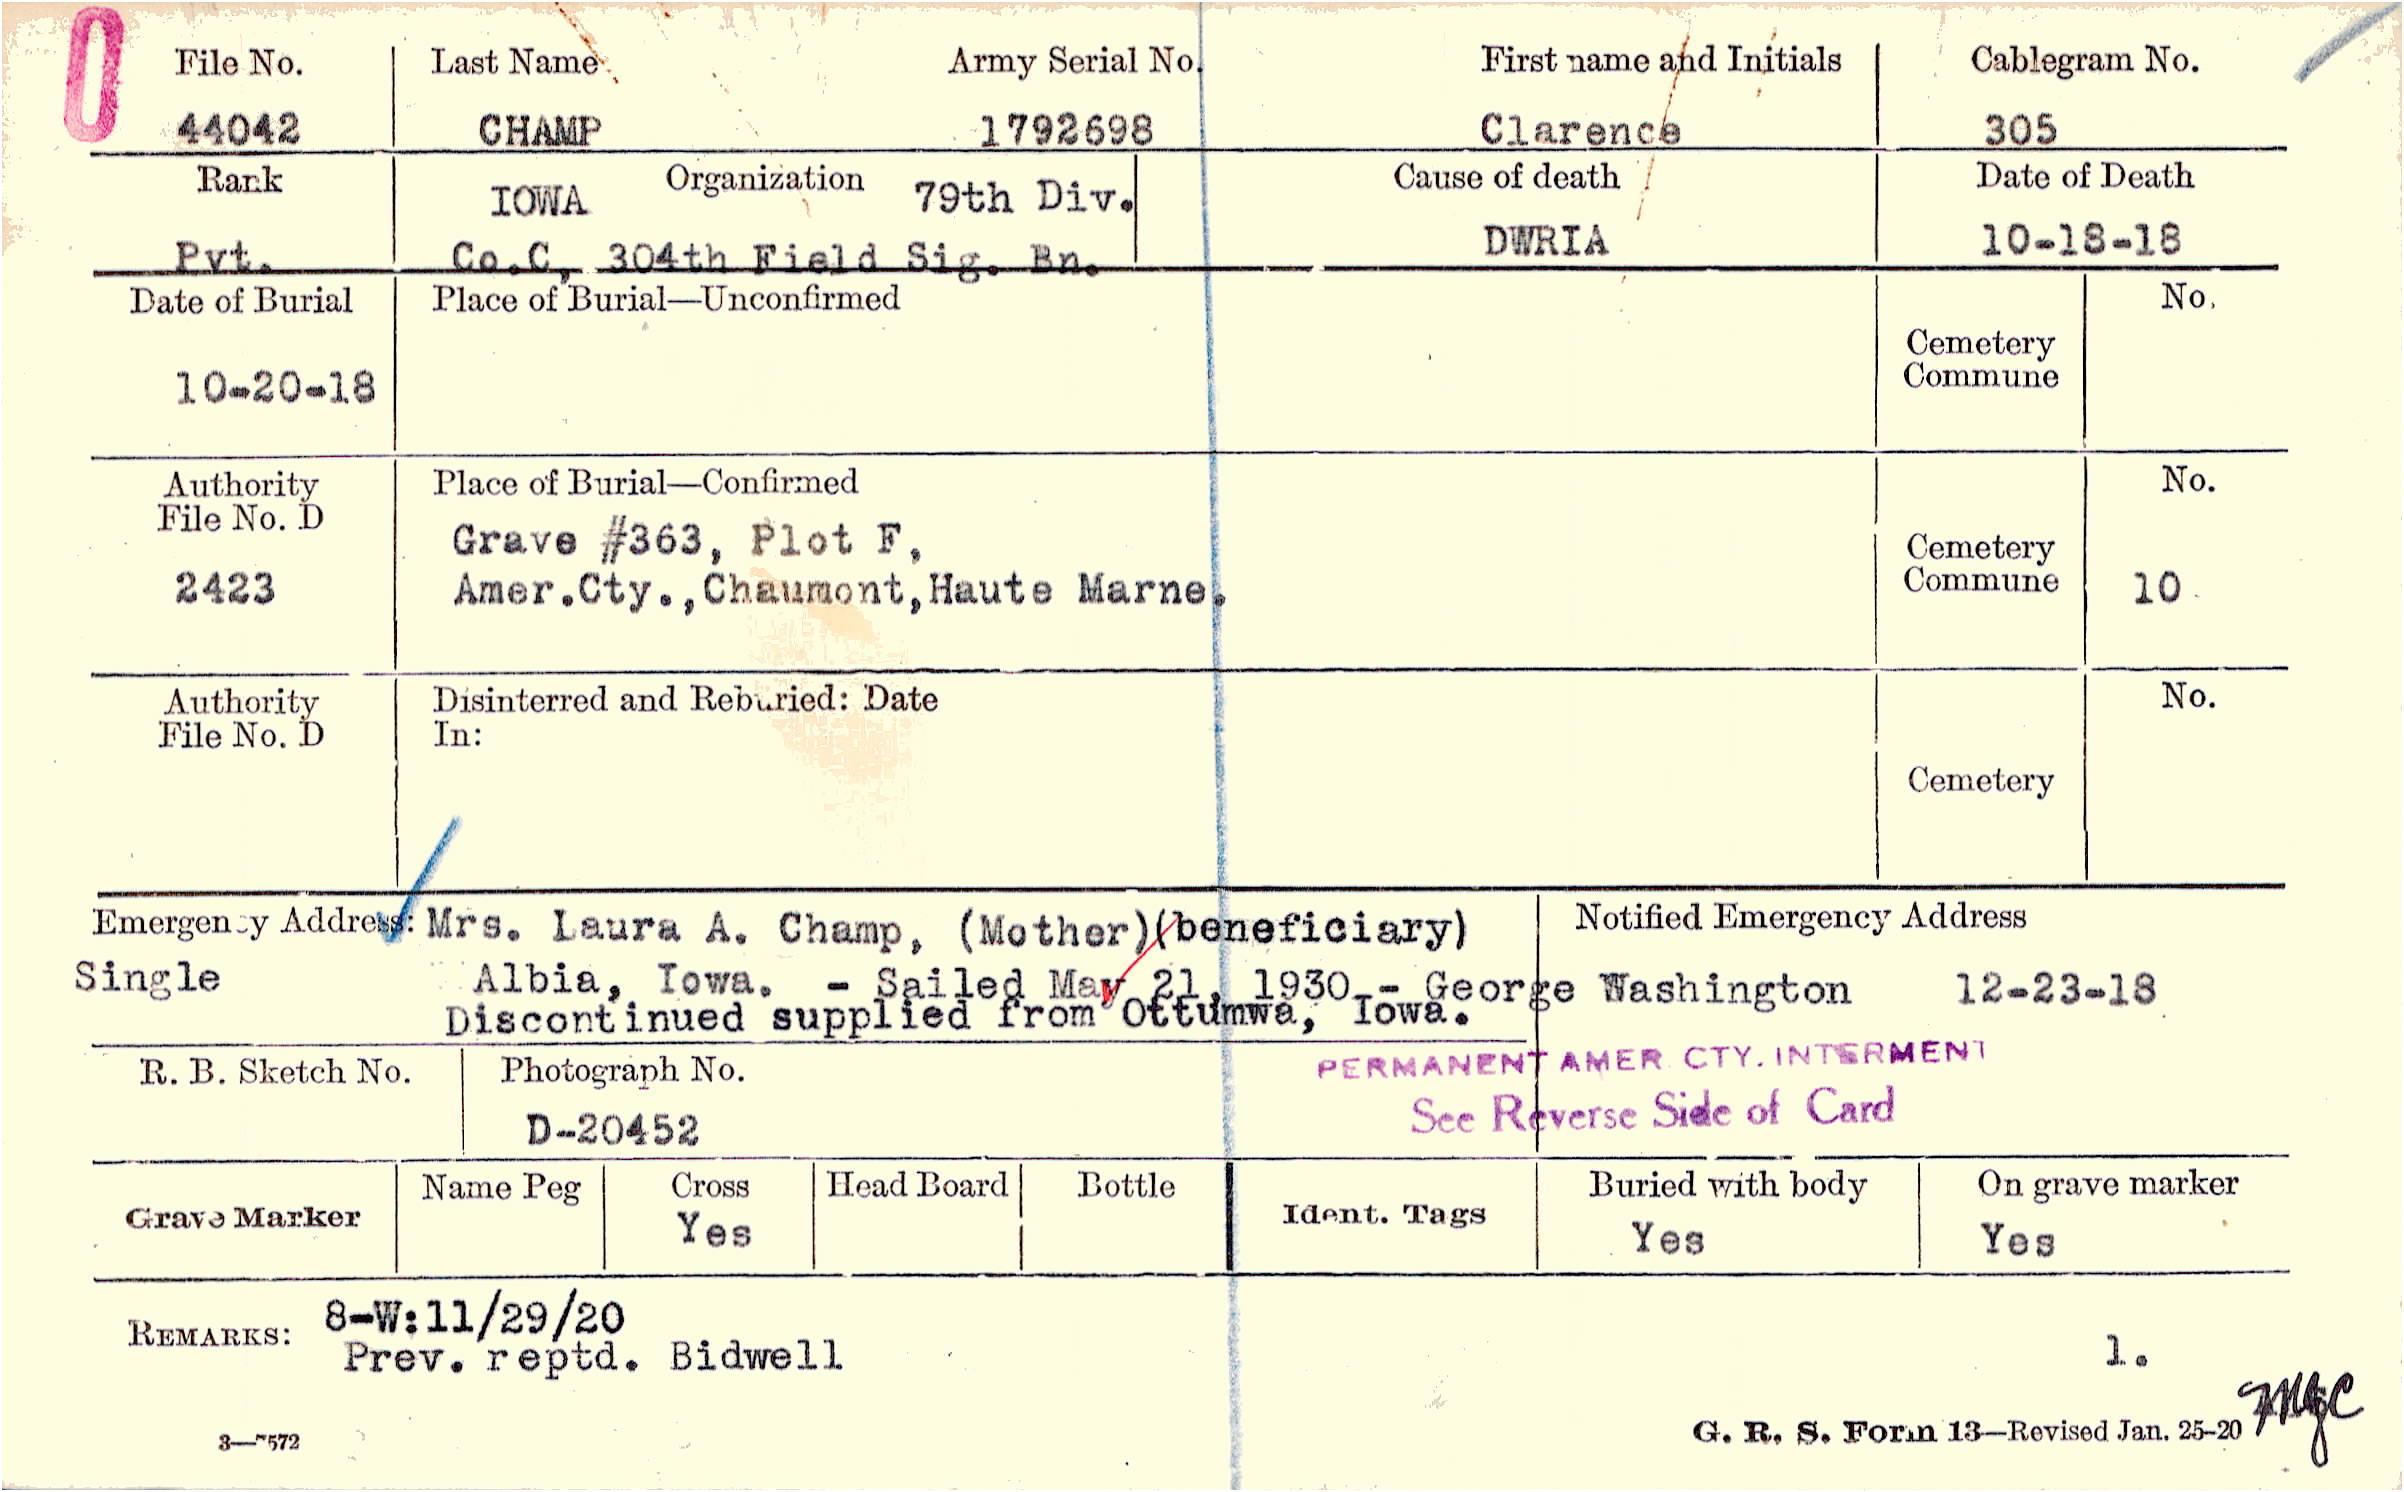 0
File No. Last Name Army Serial No. First name and Initials Cablegram No.
44042 CHAMP 1792698 Clarence 305
Rank IOWA Organization 79th Div. Cause of death Date of Death
Pvt. Co.C, 304th Field Sig. Bn. DWRIA 10-18-18
Date of Burial Place of Burial—Unconfirmed No.
Cemetery
Commune
10-20-18
Authority Place of Burial—Confirmed No.
File No. D
Grave #363, Plot F, Cemetery
2423 Amer.Cty.,Chaumont,Haute Marne. Commune 10
Authority Disinterred and Reburied: Date No.
File No. D In:
Cemetery
Emergency Address: Mrs. Laura A. Champ, (Mother)(beneficiary) Notified Emergency Address
Single Albia, Iowa. - Sailed May 21, 1930 - George Washington 12-23-18
Discontinued supplied from Ottumwa, Iowa.
PERMANENT AMER. CTY. INTERMENT
R. B. Sketch No. Photograph No.
See Reverse Side of Card
D-20452
Grave Marker Name Peg Cross Head Board Bottle Ident. Tags Buried with body On grave marker
Yes Yes Yes
REMARKS: 8-W:11/29/20
Prev. reptd. Bidwell 1.
G. R. S. Form 13—Revised Jan. 25-20